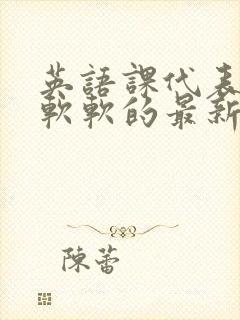 英語課代表
軟軟的最新
陳蕾